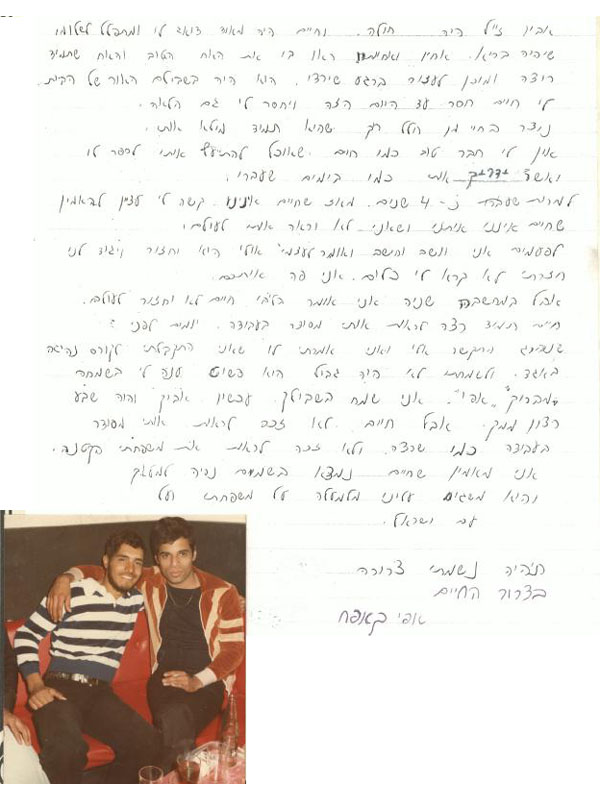 אבינו ז"ל היה חולה. וחיים היה מאוד דואג לו ומתפלל לשלומו
שיהיה בריא. אחיו ואחיותיו ראו בו את האח הטוב והאח שתמיד
רוצה ומוכן לעזור ברגע שירצו. הוא היה בשבילם האור של הבית.
לי חיים חסר עד היום הזה ויחסר לי גם הלאה.
ניצב בחיי מן חלל רק שהוא תמיד מילא אותי.
אין לי חבר טוב כמו חיים שאוכל להתייעץ איתי לספר לו
אותי כמו בימים שעברו.
למרות שעברו כ - 4 שנים. מאז שחיים איננו קשה לי עדין להאמין
שחיים איננו איתנו ושאני לא אראה אותו לעולם.
לפעמים אני יושב וחושב ואומר לעצמי אולי הוא יחזור ויגיד לנו
חזרתי לא קרה לי כלום. אני פה איתכם.
אבל במחשבה שניה אני אומר בליבי חיים לא יחזור לעולם.
חיים תמיד רצה לראות אותי מסודר בעבודה. יומיים לפני
התקשר אלי ואני אמרתי לו שאני התקבלתי לקורס נהיגה
באגד. ולשמחתו לא היה גבול הוא פשוט ענה לי בשמחה
"מברוק" "אופי". אני שמח בשבילך. עכשיו אביך יהיה שבע
רצון ממך. אבל חיים לא זכה לראות אותי מסודר
בעבודה כמו שרצה. ולא זכה לראות את משפחתי הקטנה.
אני מאמין שחיים נמצא בשמיים
והוא משגיח עלינו מלמעלה על משפחתו ועל
עם ישראל.
תהיה נשמתו צרורה
בצרור החיים
אופי קאפח